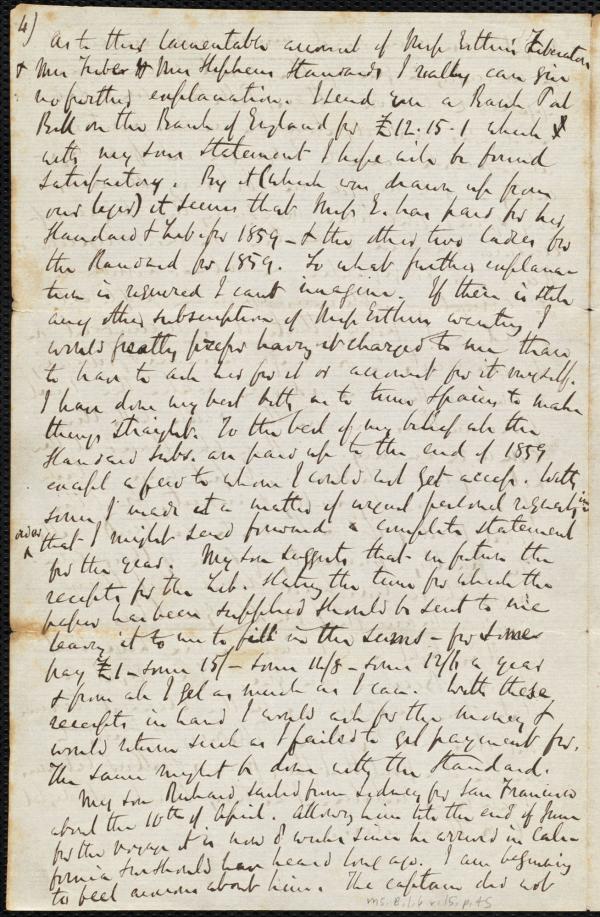 4)
As to this lamentable account of Miss Estlin's Liberator
& Mrs & Mrs Stephens Standards I really can give
no further explanation. I send you a Bank Post
Bill on the Bank of England for £12.15.1 which
with my sons statement I hope will be found
satisfactory. By it (which was drawn up from
our leger) it seems that Miss E. has paid for her
Standard & Lib. for 1859 - & the other two ladies for
the Standard for 1859. So what further explana-
tion is required I cant imagine. If there is still
any other subscription of Miss Estlin's wanting I
would greatly prefer having it charged to me than
to have to ask her for it or account for it myself.
I have done my best both as to time & pains to make
things straight. To the best of my belief all the
Standard subs. are paid up to the end of 1859
except a few to whom I could not get access. With
some I made it a matter of urgent personal request, in
order that I might send forward a complete statement
for the year. My son suggests that in future the
receipts for the Lib. stating the time for which the
paper has been supplied should be sent to me
leaving it to me to fill in the sums - for some
pay £1 - some 15/- some 14/8 - some 12/6 a year
& from all I get as much as I can. With these
receipts in hand I would ask for the money &
would return such as I failed to get payment for.
The same might be done with the Standard.
My son Richard sailed from Sidney for San Francisco
about the 10th of April. Allowing him till the end of June
for the voyage it is now 8 weeks since he arrived in Cali-
fornia & we should have heard long ago. I am beginning
to feel anxious about him. The captain did not
ms. B.1.6 v.15, p.45